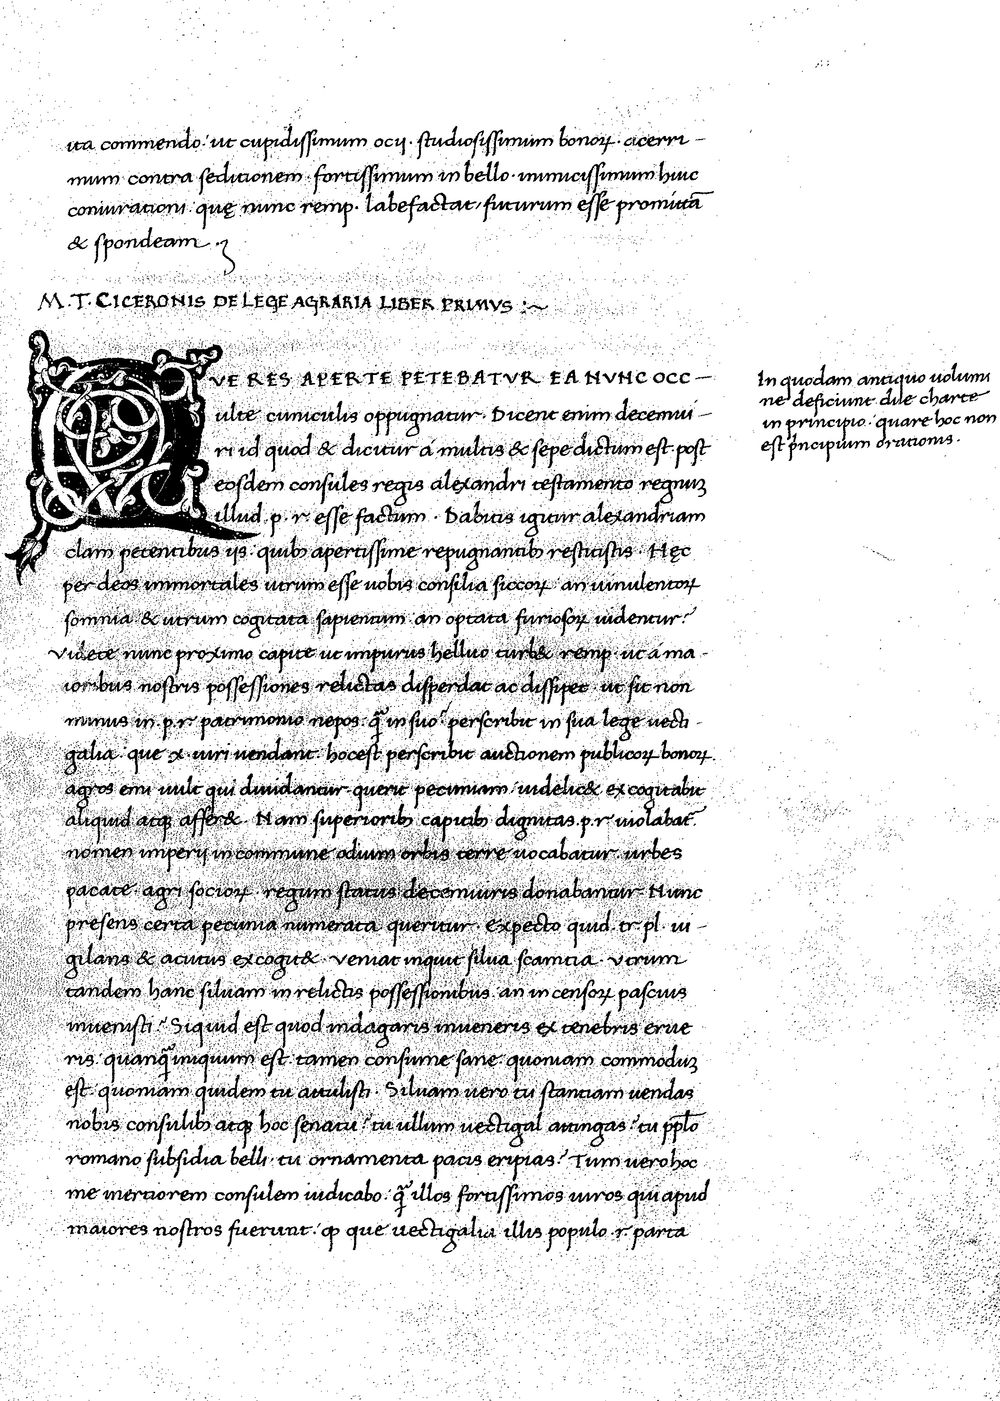 ita commendo: ut cupidissimum ocij · studiosissimum bonoꝝ · acerri-
mum contra seditionem · fortissimum in bello · inimicissimum huic
coniurationi quę nunc remp. labefactat, futurum esse promittā
& spondeam .
M. T. CICERONIS DE LEGE AGRARIA LIBER PRIMVS :~
QVE RES APERTE PETEBATVR EA NVNC OCC-
ulte cuniculis oppugnatur · Dicent enim decemui-
ri id quod & dicitur a multis & sepe dictum est · post
eosdem consules regis alexandri testamento regnuꝫ
illud .p. r. esse factum · Dabitis igitur alexandriam
clam petentibus ijs · quibꝫ apertissime repugnantibꝫ restitistis · Hęc
per deos immortales utrum esse uobis consilia siccoꝝ an uinulentoꝝ
somnia & utrum cogitata sapientum an optata furiosoꝝ uidentur?
Videte nunc proximo capite ut impurus helluo turb& remp · ut a ma-
ioribus nostris possessiones relictas disperdat ac dissipet · ut sit non
minus in .p. r. patrimonio nepos · q̃ in suo · perscribit in sua lege uecti-
galia · que x uiri uendant · hoc est perscribit auctionem publicoꝝ bonoꝝ.
agros emi uult qui diuidantur querit pecuniam · uidelic& excogitabit
aliquid atqꝫ affer& · Nam superioribꝫ capitibꝫ dignitas .p. r. uiolabat̃
nomen imperij in commune odium orbis terre uocabatur · urbes
pacate · agri socioꝝ · regum status decemuiris donabantur · Nunc
presens certa pecunia numerata queritur · Expecto quid · tr. pl. ui-
gilans & acutus excogit& · Veniat inquit silua scantia · Vtrum
tandem hanc siluam in relictis possessionibus · an in censoꝝ pascuis
inuenisti? Siquid est quod indagaris inueneris ex tenebris erue
ris · quanq̃ iniquum est · tamen consume sane · quoniam commoduꝫ
est · quoniam quidem tu attulisti · Siluam uero tu stantiam uendas
nobis consulibꝫ atqꝫ hoc senatu? tu ullum uectigal attingas? tu pp̃lo
romano subsidia belli · tu ornamenta pacis eripias? Tum uero hoc
me inertiorem consulem iudicabo · q̃ illos fortissimos uiros qui apud
maiores nostros fuerunt · ꝙ que uectigalia illis populo .r. parta
In quodam antiquo uolumi
ne deficiunt due charte
in principio · quare hoc non
est p̃ncipium orationis ·